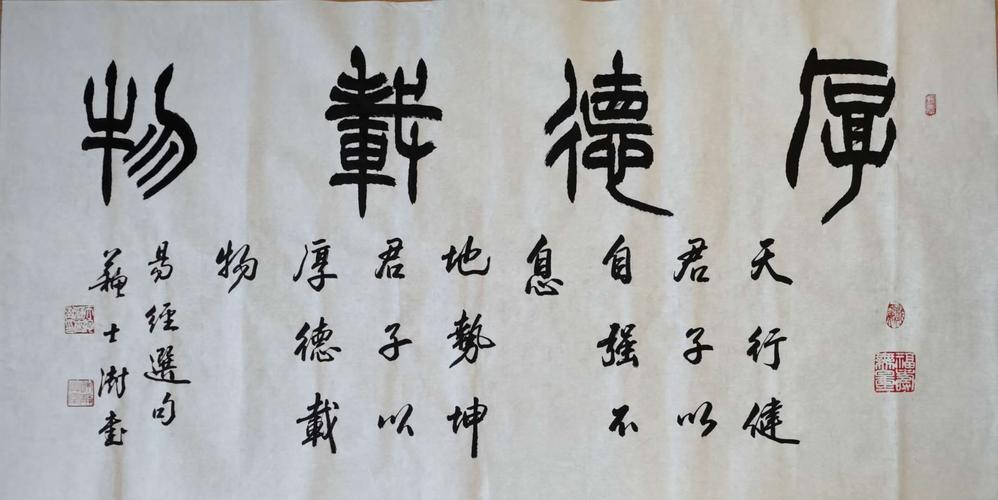 厚德載物
天行健
君子以
自强不
息
地勢坤
君子以
厚德載
物
易經選句
蘇士澍書
福壽無量